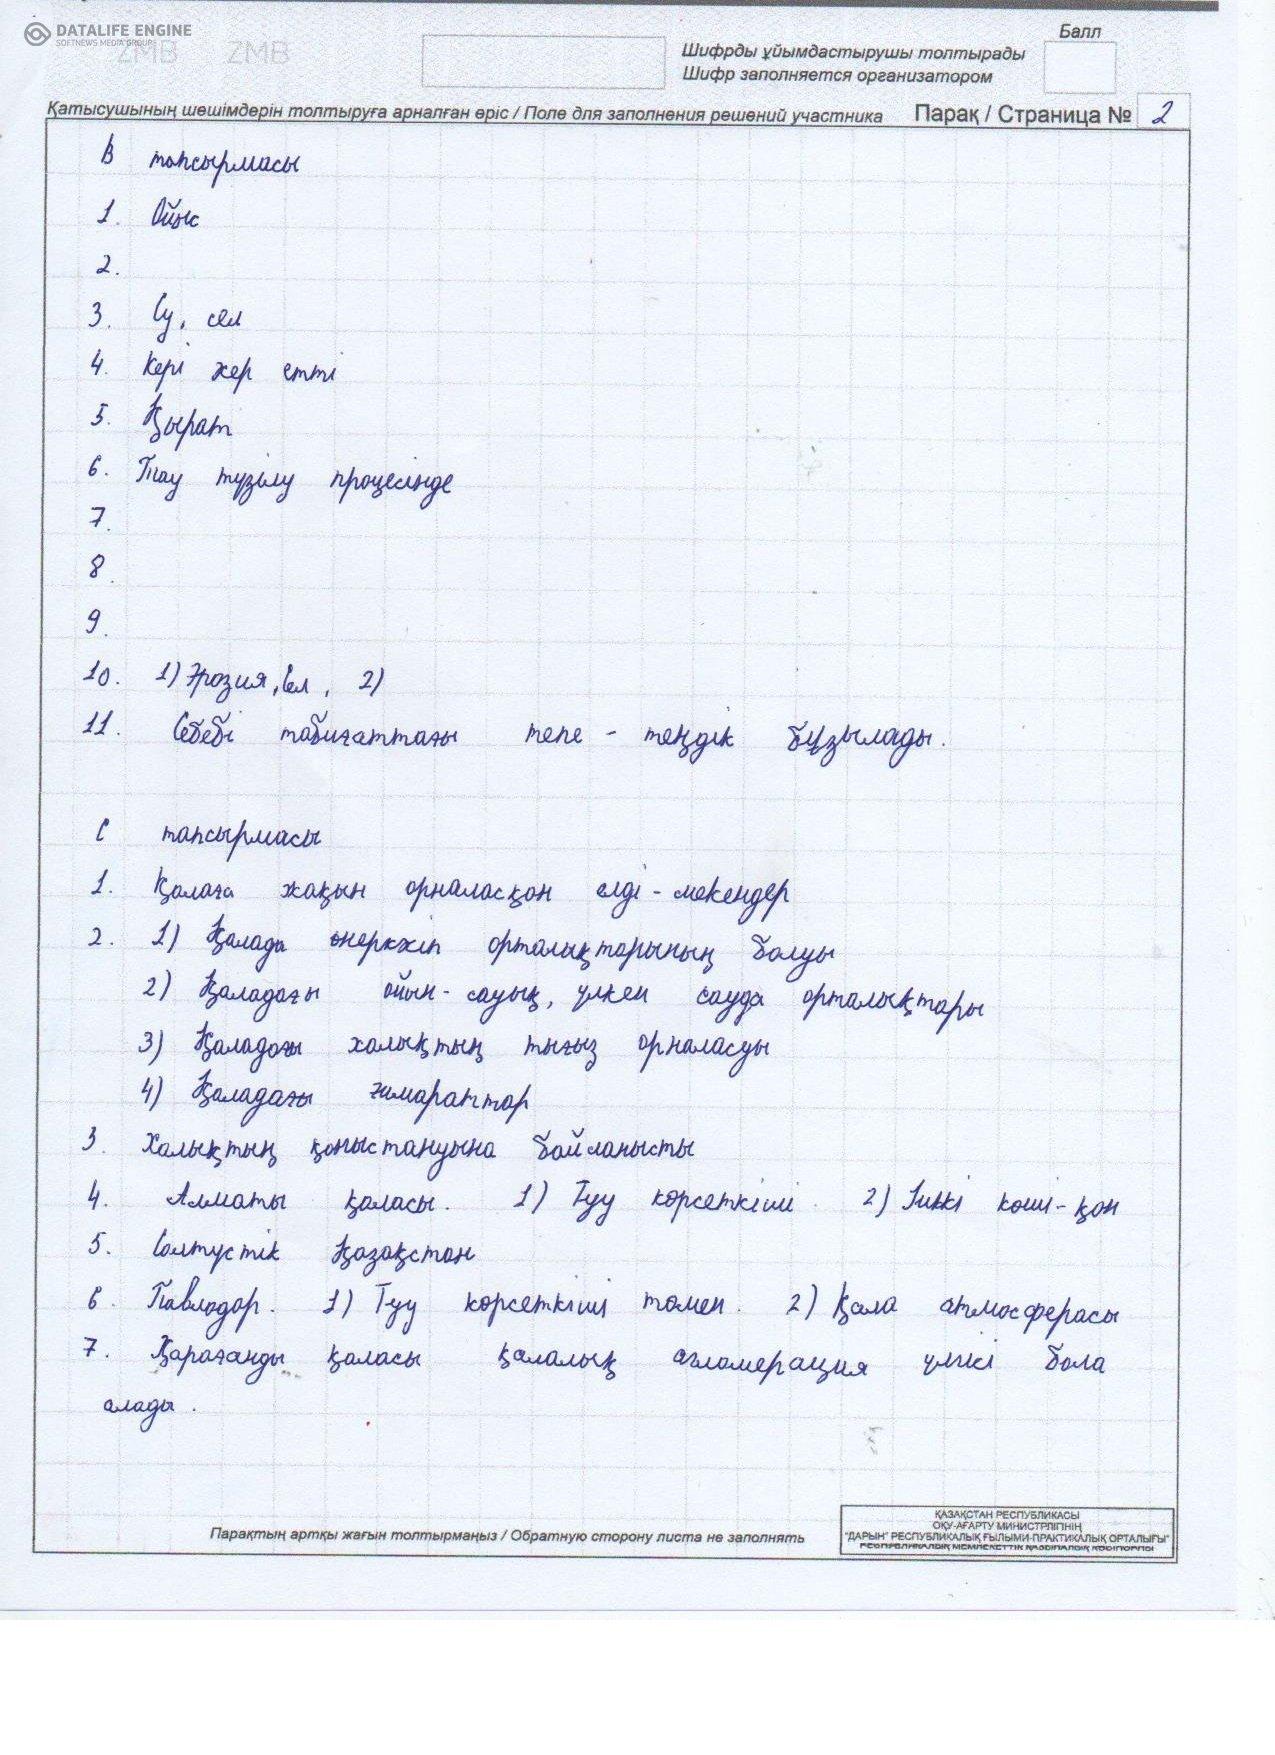 DATALIFE ENGINE
SOFTNEWS MEDIA GROUP
ZMB ZMB
Балл
Шифрды ұйымдастырушы толтырады
Шифр заполняется организатором
Қатысушының шешімдерін толтыруға арналған өріс / Поле для заполнения решений участника Парақ / Страница № 2
В тапсырмасы
1. Ойыс
2.
3. Су, сел
4. Кері жер етті
5. Қырат
6. Тау түзілу процесінде
7.
8.
9.
10. 1) Эрозия, Сел, 2)
11. Себебі табиғаттағы тепе - теңдік бұзылады.
С тапсырмасы
1. Қалаға жақын орналасқан елді - мекендер
2. 1) Қалада өнеркәсіп орталықтарының болуы
2) Қаладағы ойын - сауық, үлкен сауда орталықтары
3) Қаладағы халықтың тығыз орналасуы
4) Қаладағы ғимараттар
3. Халықтың қоныстануына байланысты
4. Алматы қаласы. 1) Туу көрсеткіші. 2) Ішкі көші - қон
5. Солтүстік Қазақстан
6. Павлодар. 1) Туу көрсеткіші төмен. 2) Қала атмосферасы
7. Қарағанды қаласы қалалық агломерация үлгісі бола
алады.
Парақтың артқы жағын толтырмаңыз / Обратную сторону листа не заполнять
ҚАЗАҚСТАН РЕСПУБЛИКАСЫ
ОҚУ-АҒАРТУ МИНИСТРЛІГІНІҢ
"ДАРЫН" РЕСПУБЛИКАЛЫҚ ҒЫЛЫМИ-ПРАКТИКАЛЫҚ ОРТАЛЫҒЫ"
РЕСПУБЛИКАЛЫҚ МЕМЛЕКЕТТІК ҚАЗЫНАЛЫҚ КӘСІПОРНЫ